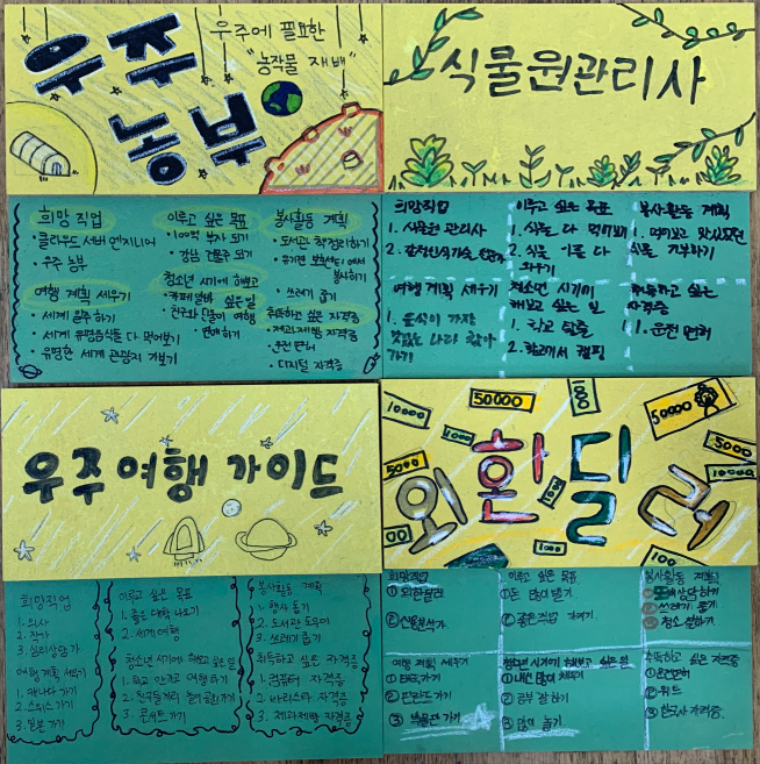 우주
농부
우주에 필요한
"농작물 재배"
희망 직업
• 클라우드 서버 엔지니어
• 우주 농부
여행 계획 세우기
• 세계 일주 하기
• 세계 유명음식들 다 먹어보기
• 유명한 세계 관광지 가보기
이루고 싶은 목표
• 100억 부자 되기
• 강남 건물주 되기
청소년 시기에 해보고
싶은 일
• 카페알바
• 친구와 단둘이 여행
• 연애하기
봉사활동 계획
• 도서관 책정리하기
• 유기견 보호센터에서
봉사하기
• 쓰레기 줍기
취득하고 싶은 자격증
• 제과제빵 자격증
• 운전면허
• 디지털 자격증
식물원관리사
희망직업
1. 식물원 관리사
2.
이루고 싶은 목표
1. 식물 다 먹어보기
2. 식물 이름 다
외우기
봉사활동 계획
1. 먹어보고 맛있으면
식물 기부하기
여행 계획 세우기
1. 음식이 가장
맛있는 나라 찾아
가기
청소년 시기에
해보고 싶은 일
1. 학교 탈출
2. 학교에서 캠핑
취득하고 싶은
자격증
1. 운전 면허
우주여행 가이드
희망직업
1. 의사
2. 작가
3. 심리상담가
여행계획 세우기
1. 캐나다 가기
2. 스위스 가기
3. 일본 가기
이루고 싶은 목표
1. 좋은 대학 나오기
2. 세계여행
청소년 시기에 해보고 싶은 일
1. 학교 안가고 여행하기
2. 친구들끼리 놀이공원가기
3. 콘서트가기
봉사활동 계획
1. 행사 돕기
2. 도서관 도우미
3. 쓰레기 줍기
취득하고 싶은 자격증
1. 컴퓨터 자격증
2. 바리스타 자격증
3. 제과제빵 자격증
외환딜러
10000
50000
1000
50000
1000
5000
5000
10000
1000
1000
00
100
희망직업
① 외환딜러
② 신용분석가
이루고 싶은 목표
① 돈 많이 벌기
② 좋은직업 가지기
봉사활동 계획
쓰레기 줍기
청소 잘하기
여행 계획 세우기
① 태국가기
② 핀란드가기
③ 박물관 가기
청소년 시기에 해보고 싶은 일
① 내신 많이 채우기
② 공부 잘하기
③ 많이 놀기
취득하고 싶은 자격증
① 운전면허
② 워드
③ 한국사 자격증